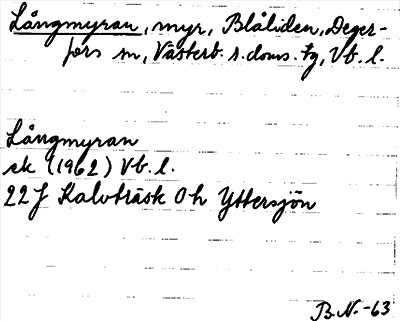 Långmyran, myr, Blåliden, Deger-
fors sn, Västerb. s. doms. tg, Vb. l.
Långmyran
ek (1962) Vb. l.
22J Kalvträsk 0h Yttersjön
B.N. -63